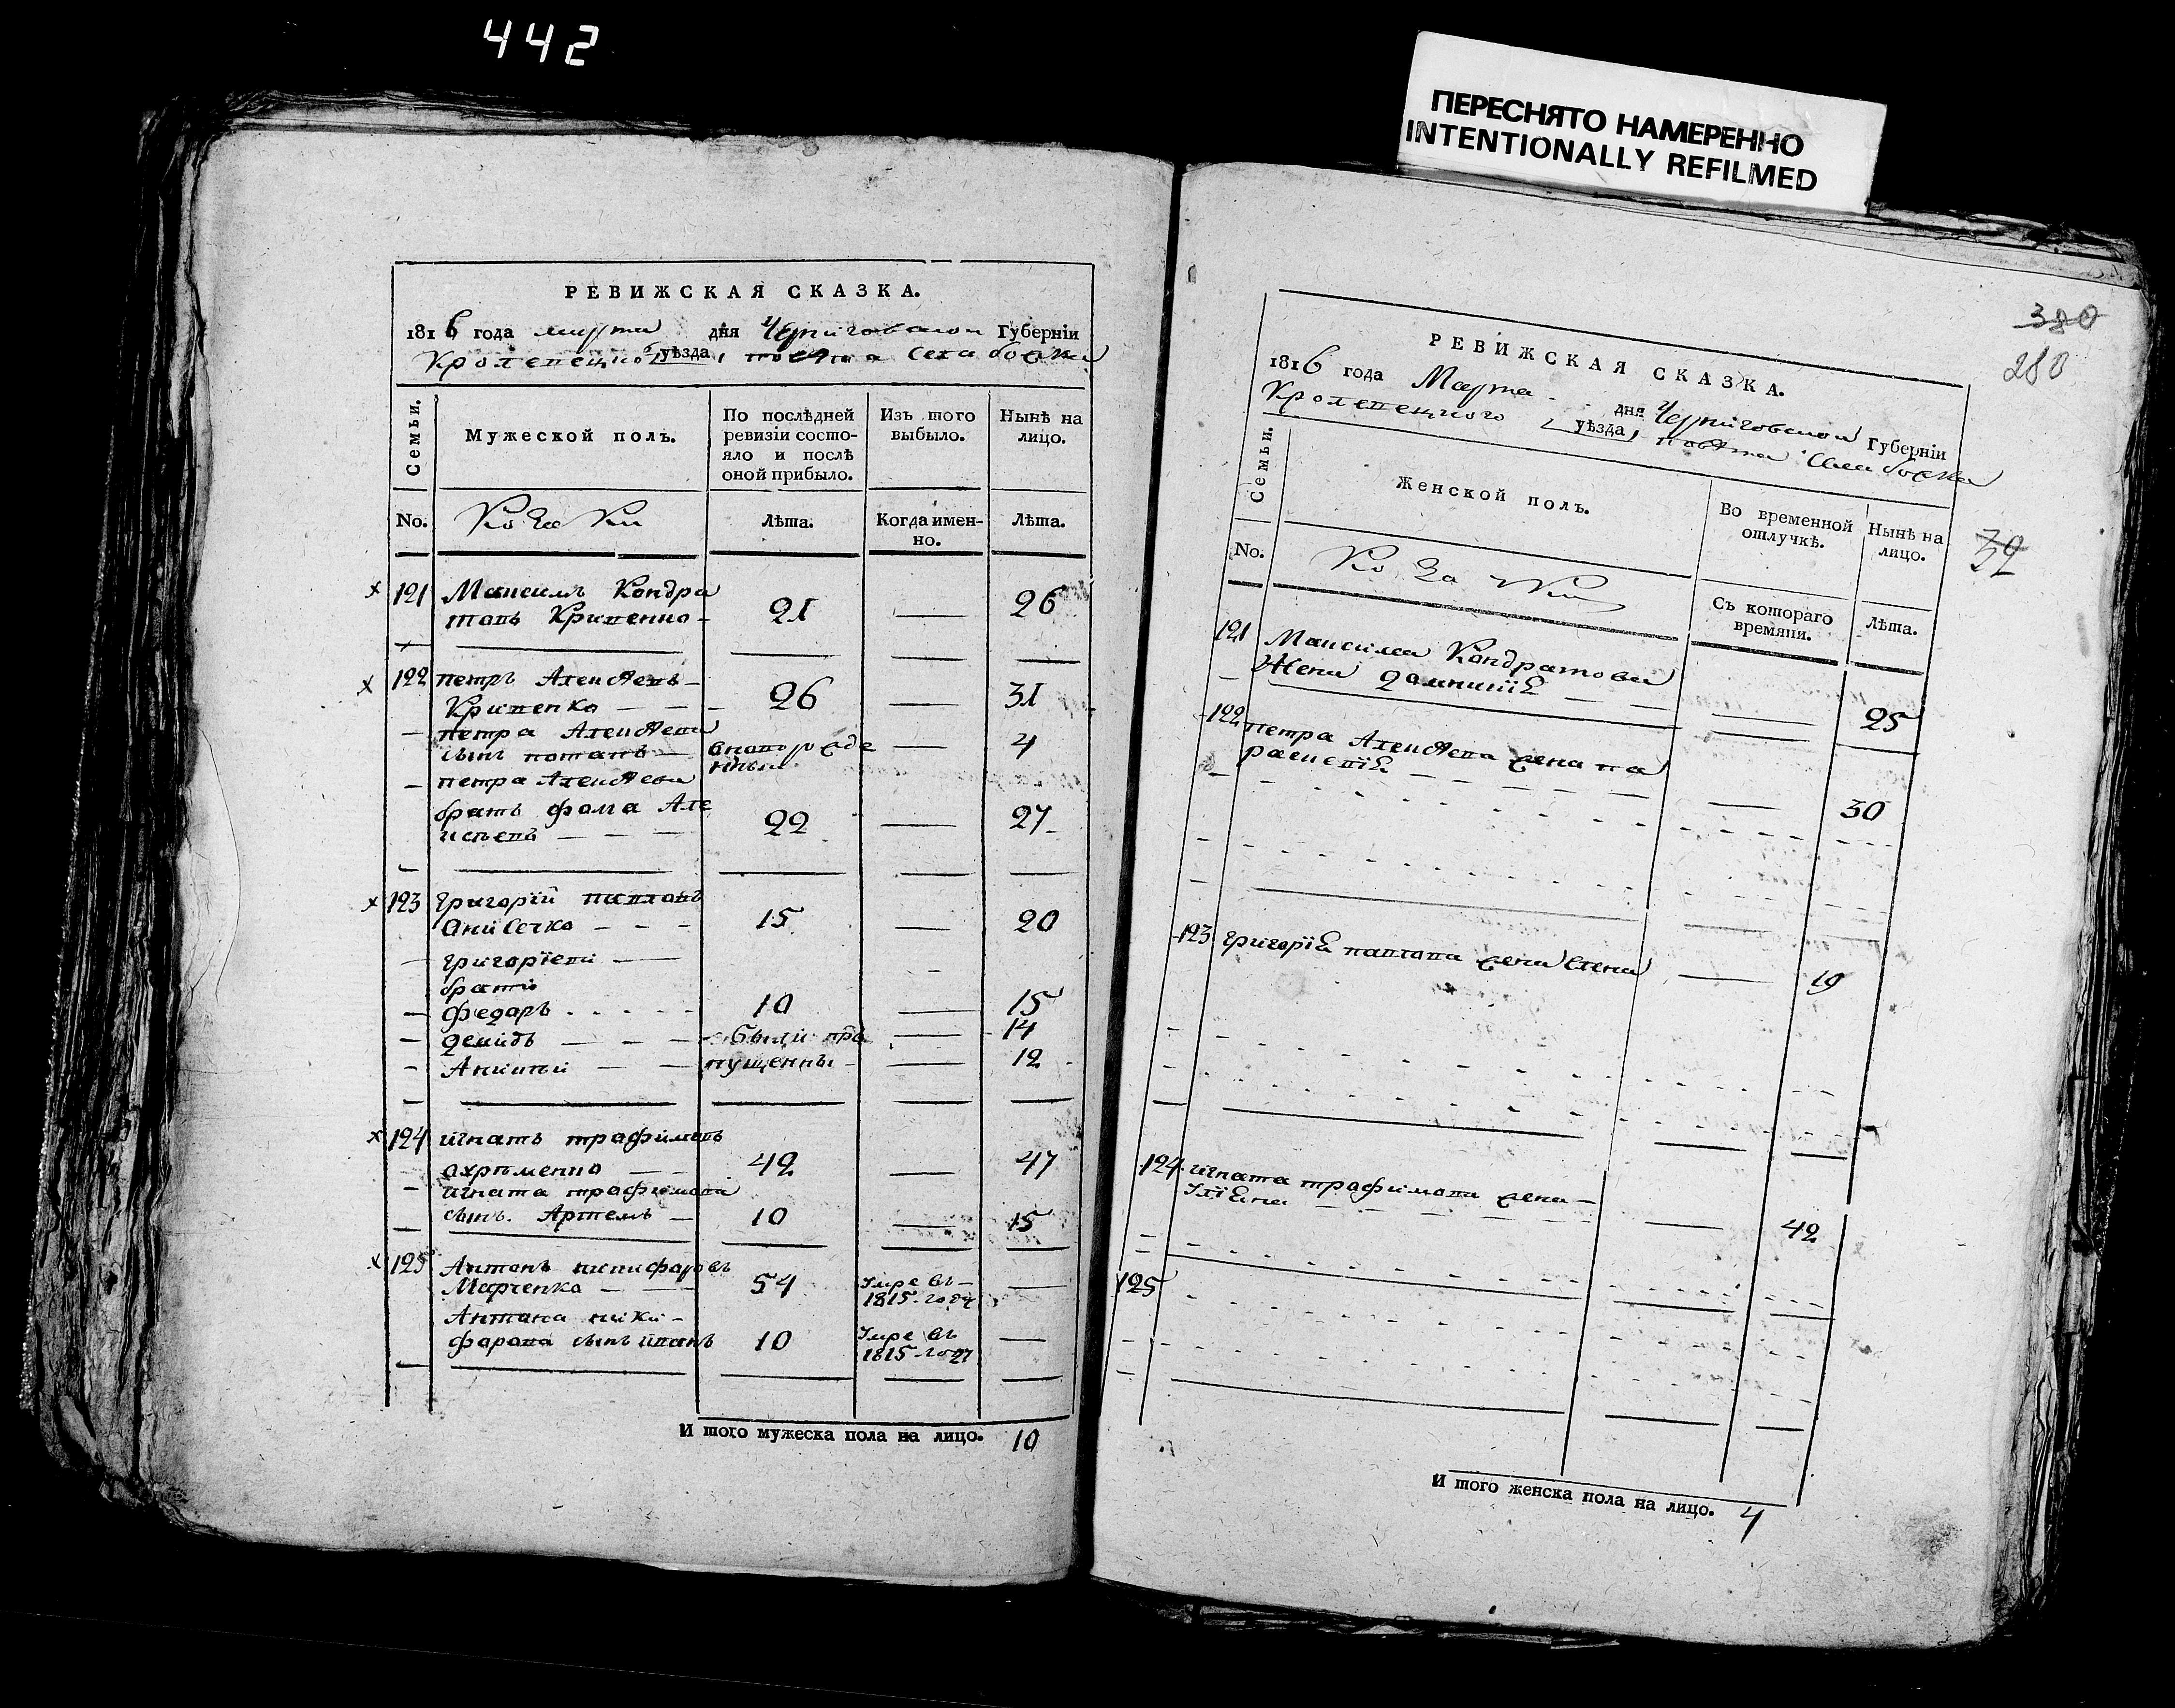 442
ПЕРЕСНЯТО НАМЕРЕННО
INTENTIONALLY REFILMED
РЕВИЖСКАЯ СКАЗКА.
1816 года марта дня Черниговской Губерніи
Кролевецкого уѣзда, повѣта села
Семьи.
Мужеской полъ.
По послѣдней
ревизіи состо-
яло и послѣ
оной прибыло.
Изъ того
выбыло.
Нынѣ на
лицо.
No.
Козаки
Лѣта.
Когда имен-
но.
Лѣта.
121 Максимъ Кондра
товъ Криvenко 21 — 26
122 петръ Алексѣевъ
Кривенко — 26 — 31
петра Алексѣева
сынъ потапъ — вновороже — 4
нный
петра Алексѣева
братъ фома Але
ксѣевъ — 22 — 27
123 григорій павловъ
Анисечко 15 — 20
григоріеви —
братя
федоръ 10 — 15
демидъ — были про — 14
Аникій — пущенны — 12
124 игнатъ трофимовъ
ахрѣменко — 42 — 47
игната трофимова
сынъ Артемъ — 10 — 15
125 Антонъ никифоровъ
Марченко — 54 умре въ —
1815 году
Антона ники-
форова сынъ иванъ 10 умре въ —
1815 году
И того мужеска пола на лицо. 10
380
280
39
РЕВИЖСКАЯ СКАЗКА.
1816 года Марта дня Черниговской Губерніи
Кролевецкого уѣзда, повѣта села
Семьи.
Женской полъ.
Во временной
отлучкѣ.
Нынѣ на
лицо.
No.
Козачки
Съ котораго
времяни.
Лѣта.
121 Максима Кондратова
Жена домникія — 25
122 петра Алексѣева жена па
раскевія — 30
123 григорія павлова жена елена — 19
124 игната трофимова жена —
уліяна — 42
125
И того женска пола на лицо. 4